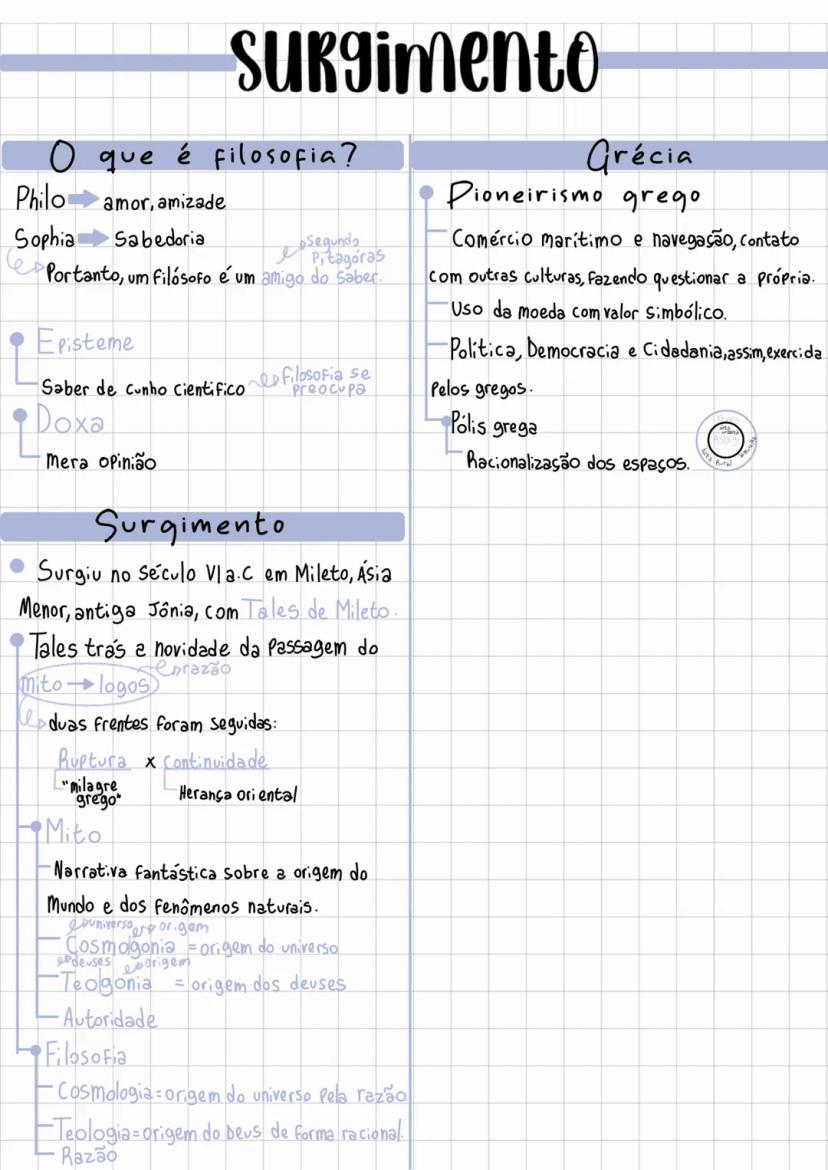 surgimento
O que é filosofia?
Philo → amor, amizade
Sophia → Sabedoria
segundo
Pitágoras
Portanto, um filósofo é um amigo do saber.
Episteme
Saber de cunho científico
Filosofia se
preocupa
Doxa
Mera opinião
Surgimento
Surgiu no século VI a.C em Mileto, Ásia
Menor, antiga Jônia, com Tales de Mileto.
Tales trás a novidade da passagem do
razão
mito → logos
duas frentes foram seguidas:
Ruptura x Continuidade
"milagre
grego"
Herança oriental
Mito
Narrativa fantástica sobre a origem do
Mundo e dos fenômenos naturais.
universo origem
Cosmogonia = origem do universo
deuses origem
Teogonia = origem dos deuses
Autoridade
Filosofia
Cosmologia = origem do universo pela razão
Teologia = origem do Deus de forma racional.
Razão
Grécia
Pioneirismo grego
Comércio marítimo e navegação, contato
com outras culturas, fazendo questionar a própria.
Uso da moeda com valor simbólico.
Política, Democracia e Cidadania, assim, exercida
pelos gregos.
Pólis grega
Racionalização dos espaços.
área
urbana
Área Rural